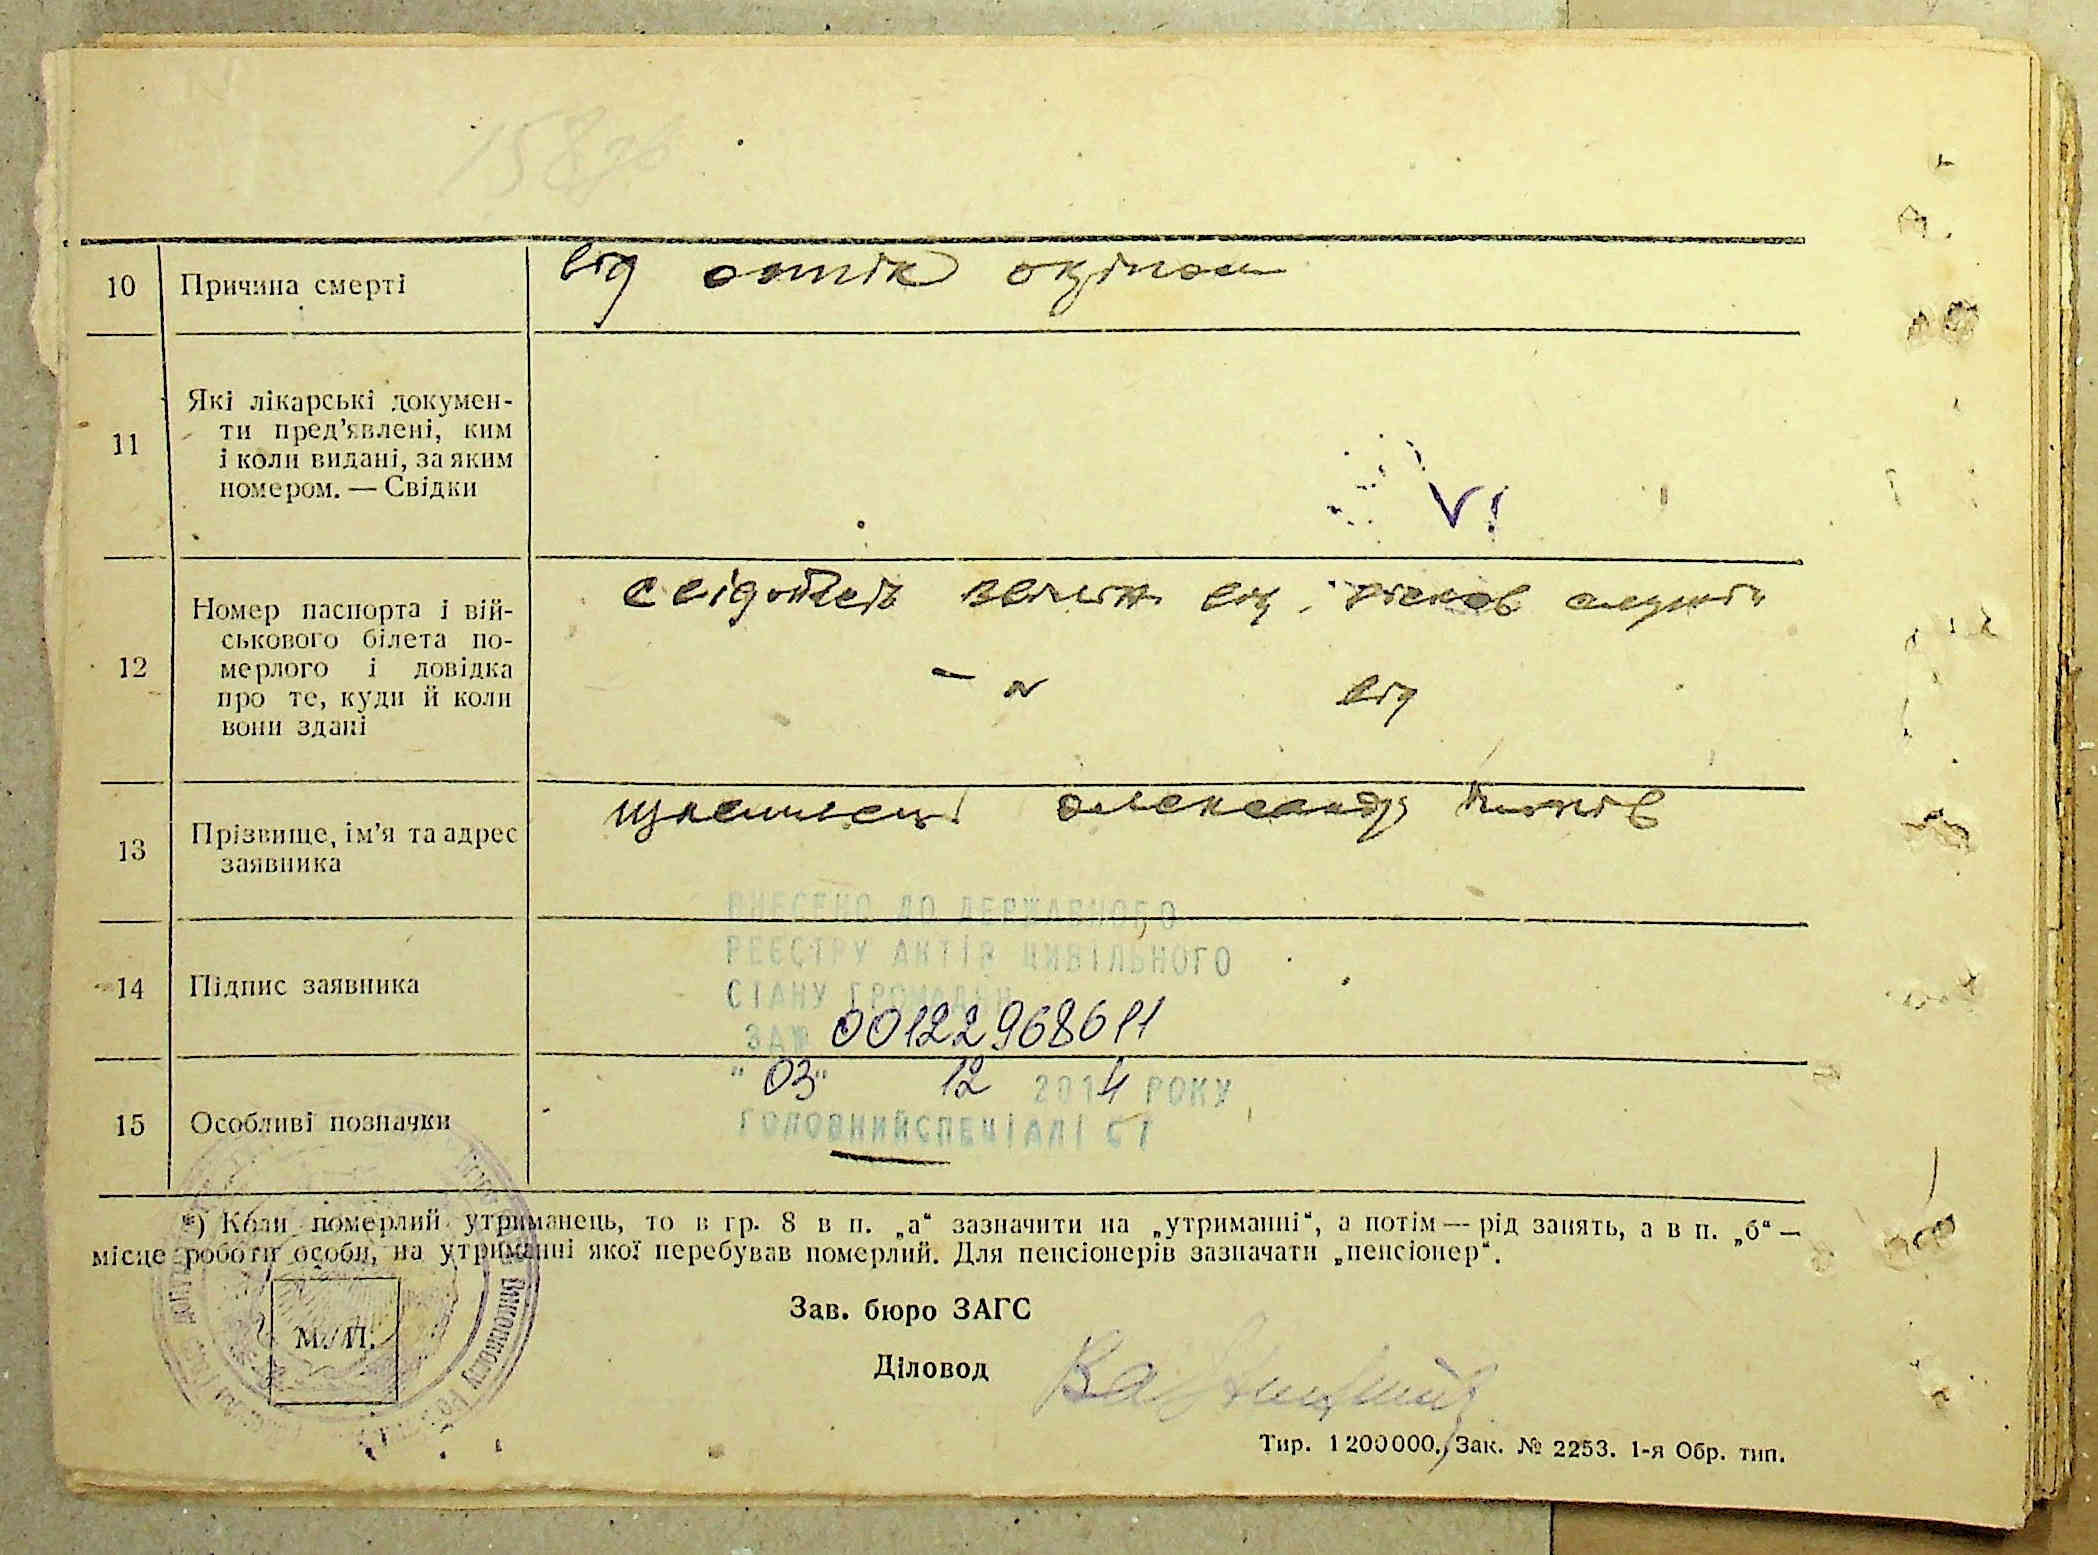 10 Причина смерті від опік окропом
11 Які лікарські докумен-
ти пред’явлені, ким
і коли видані, за яким
номером. — Свідки
12 Номер паспорта і вій-
ськового білета по-
мерлого і довідка
про те, куди й коли
вони здані
від
13 Прізвище, ім’я та адрес
заявника
Олександр
ВНЕСЕНО ДО ДЕРЖАВНОГО
РЕЄСТРУ АКТІВ ЦИВІЛЬНОГО
СТАНУ ГРОМАДЯН
14 Підпис заявника
ЗА№ 00122968611
"03" 12 2014 РОКУ
15 Особливі позначки
ГОЛОВНИЙ СПЕЦІАЛІСТ
*) Коли померлий утриманець, то в гр. 8 в п. „а“ зазначити на „утриманні“, а потім — рід занять, а в п. „б“ —
місце роботи особи, на утриманні якої перебував померлий. Для пенсіонерів зазначати „пенсіонер“.
Зав. бюро ЗАГС
М. П.
Діловод
Тир. 1 200 000. Зак. № 2253. 1-я Обр. тип.